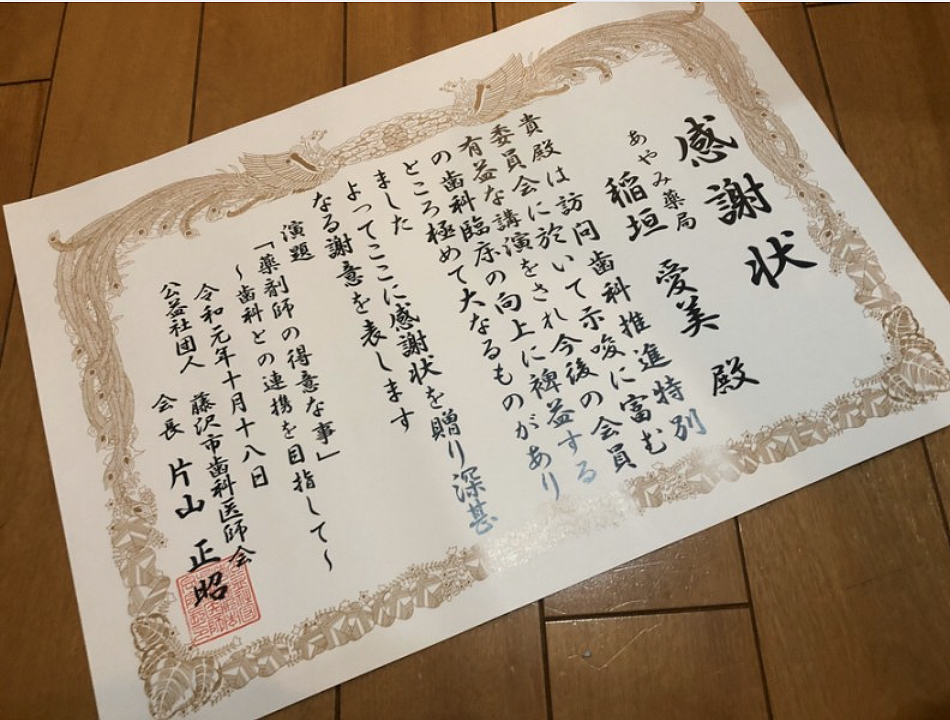 感謝状
あやみ薬局
稲垣 愛美 殿
貴殿は訪问歯科推進特別
委員会に於いて示唆に富む
有益な講演をされ今後の会員
の歯科臨床の向上に裨益する
ところ極めて大なるものがあり
ました
よってここに感謝状を贈り深甚
なる謝意を表します
演題
「薬剤師の得意な事」
~歯科との連携を目指して~
令和元年十月十八日
公益社団人 藤沢市歯科医師会
会長 片山 正昭